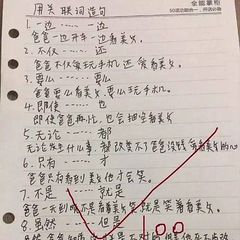 全能掌柜
用关联词造句
1. 一边 …… 一边
爸爸一边开车一边看美女。
2. 不仅 …… 还
爸爸不仅爱玩手机还爱看美女。
3. 要么 …… 要么
爸爸要么看美女要么玩手机。
4. 即使 …… 也
即使爸爸再忙，也会抽空看美女。
5. 无论 …… 都
无论发生什么事，都改变不了爸爸看美女的心
6. 只有 …… 才
爸爸只有看到美女他才会笑。
7. 不是 …… 就是
爸爸一天到晚不是看着美女就是笑着看美女。
8. 虽然 …… 但是
100